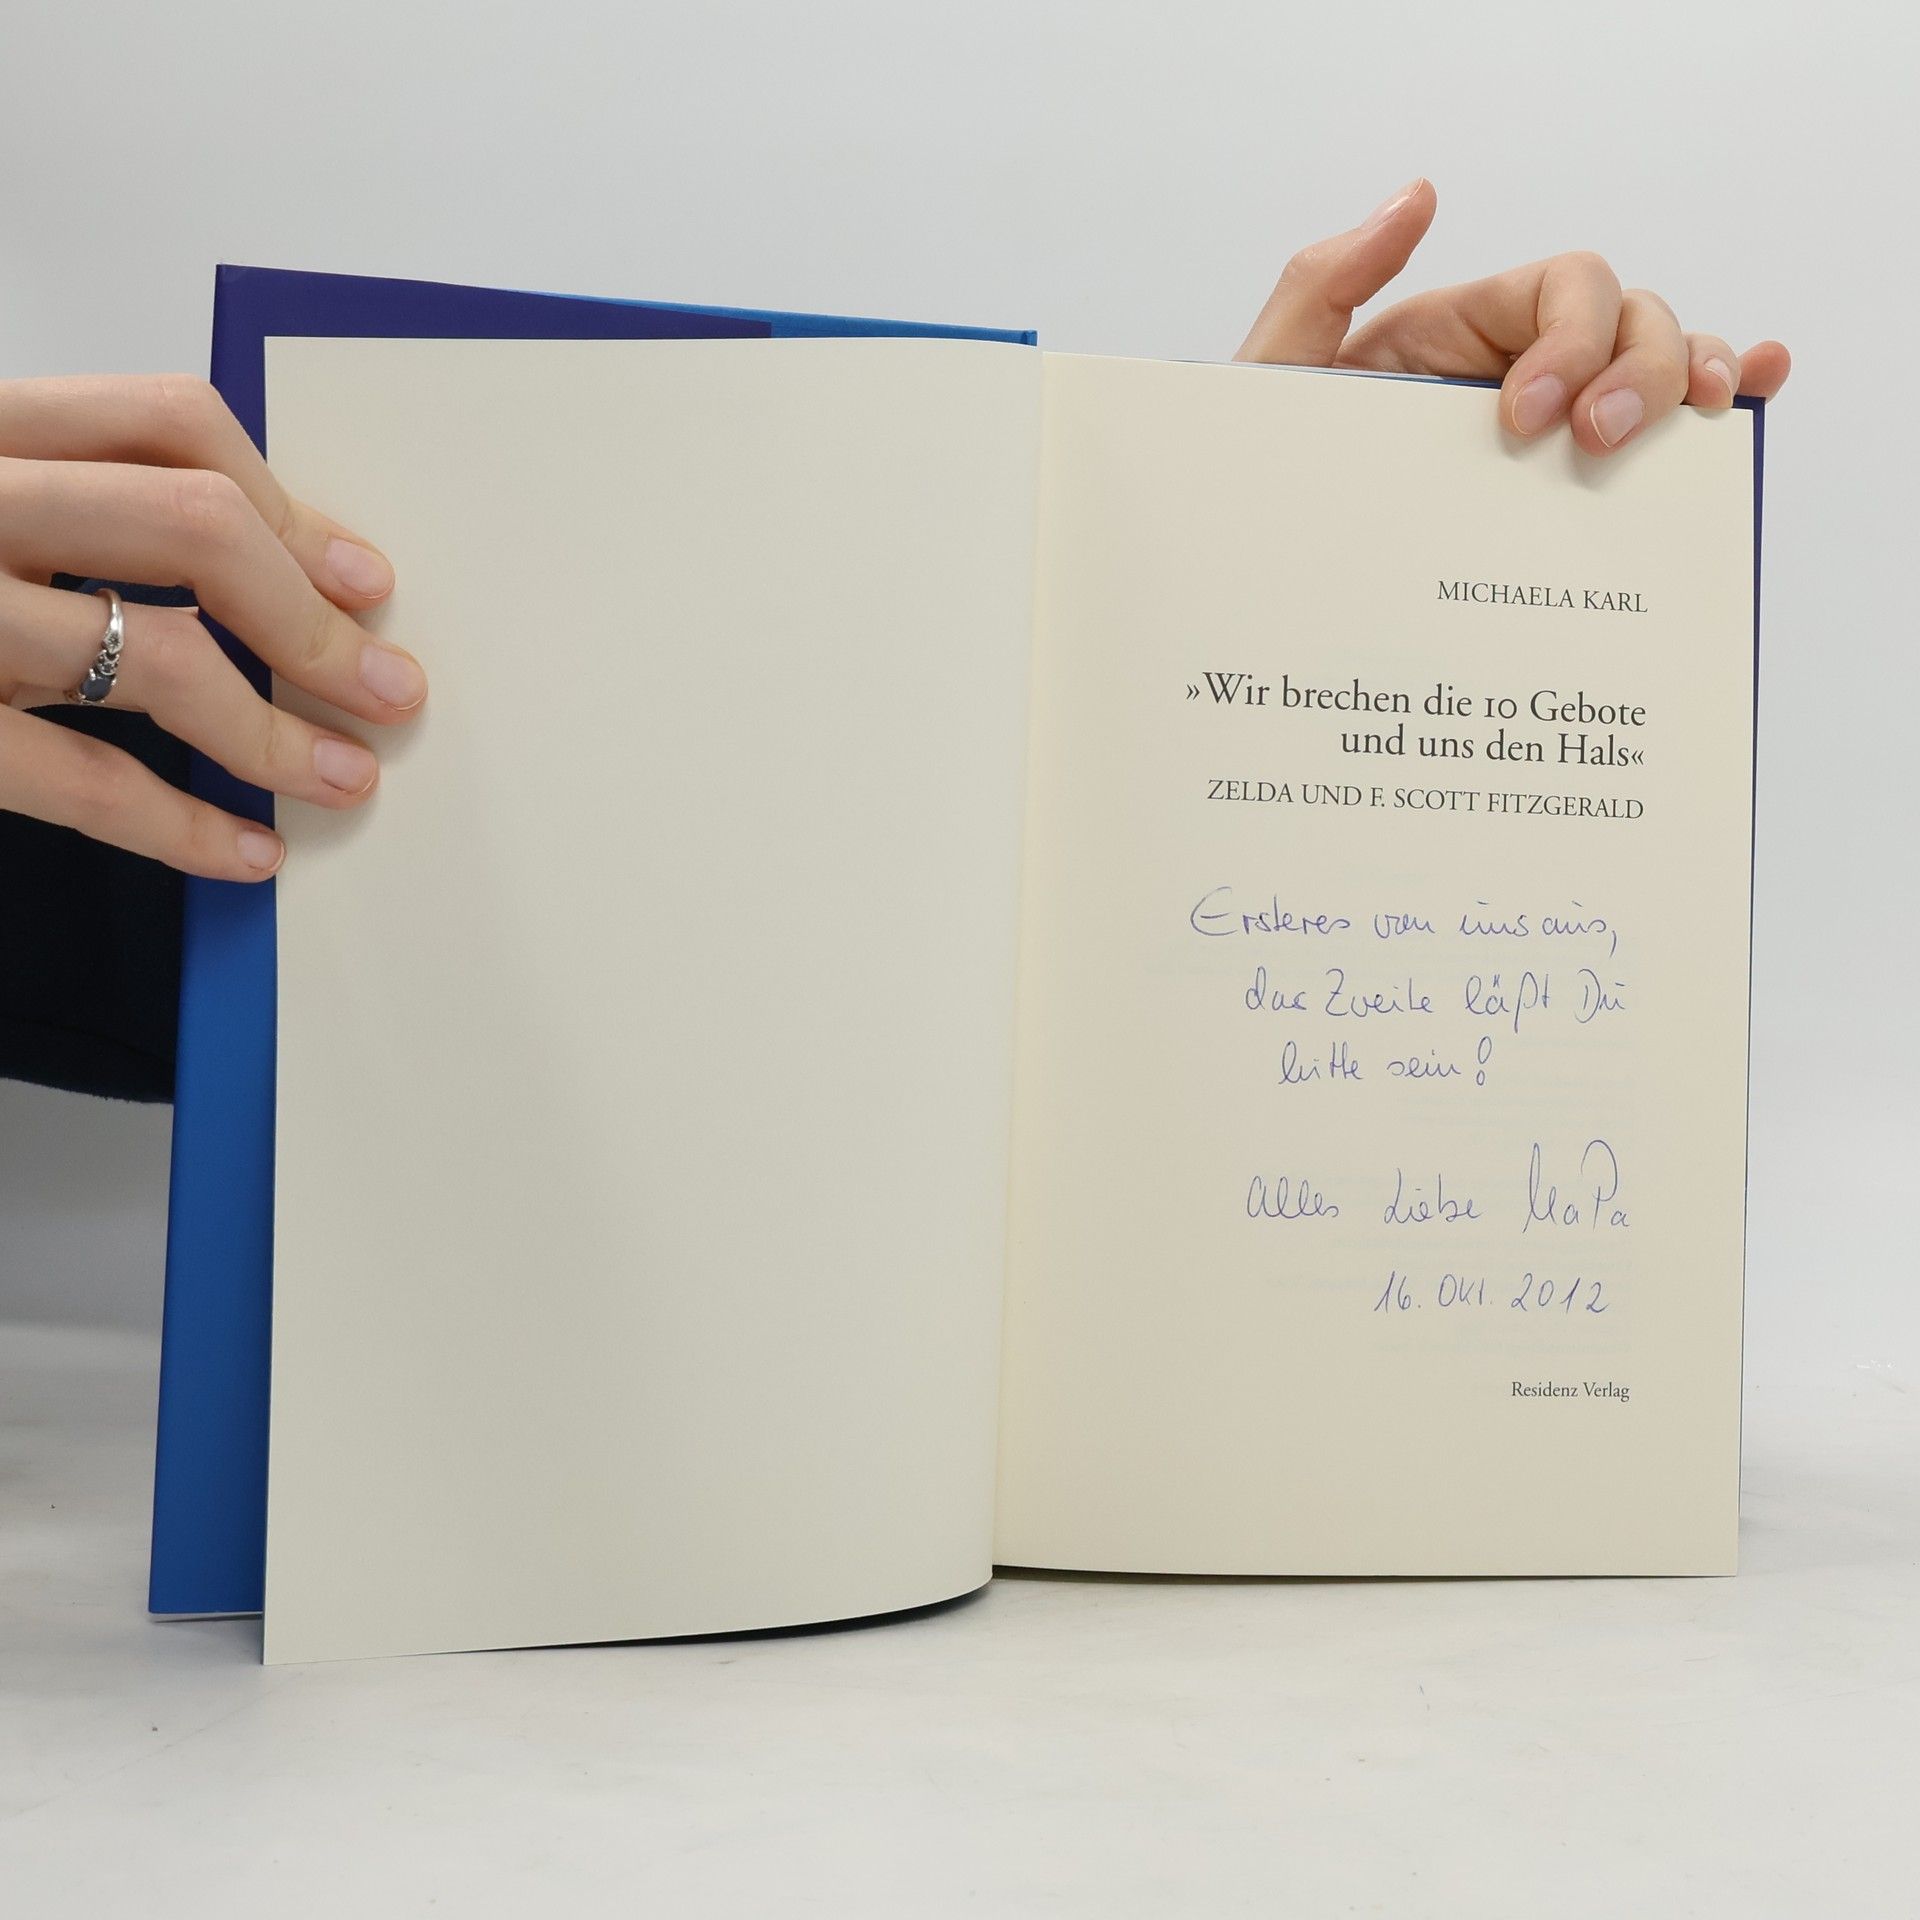 MICHAELA KARL
»Wir brechen die 10 Gebote
und uns den Hals«
ZELDA UND F. SCOTT FITZGERALD
Ersteres von uns aus,
das Zweite läßt Du
bitte sein!
Alles Liebe MaPa
16. Okt. 2012
Residenz Verlag